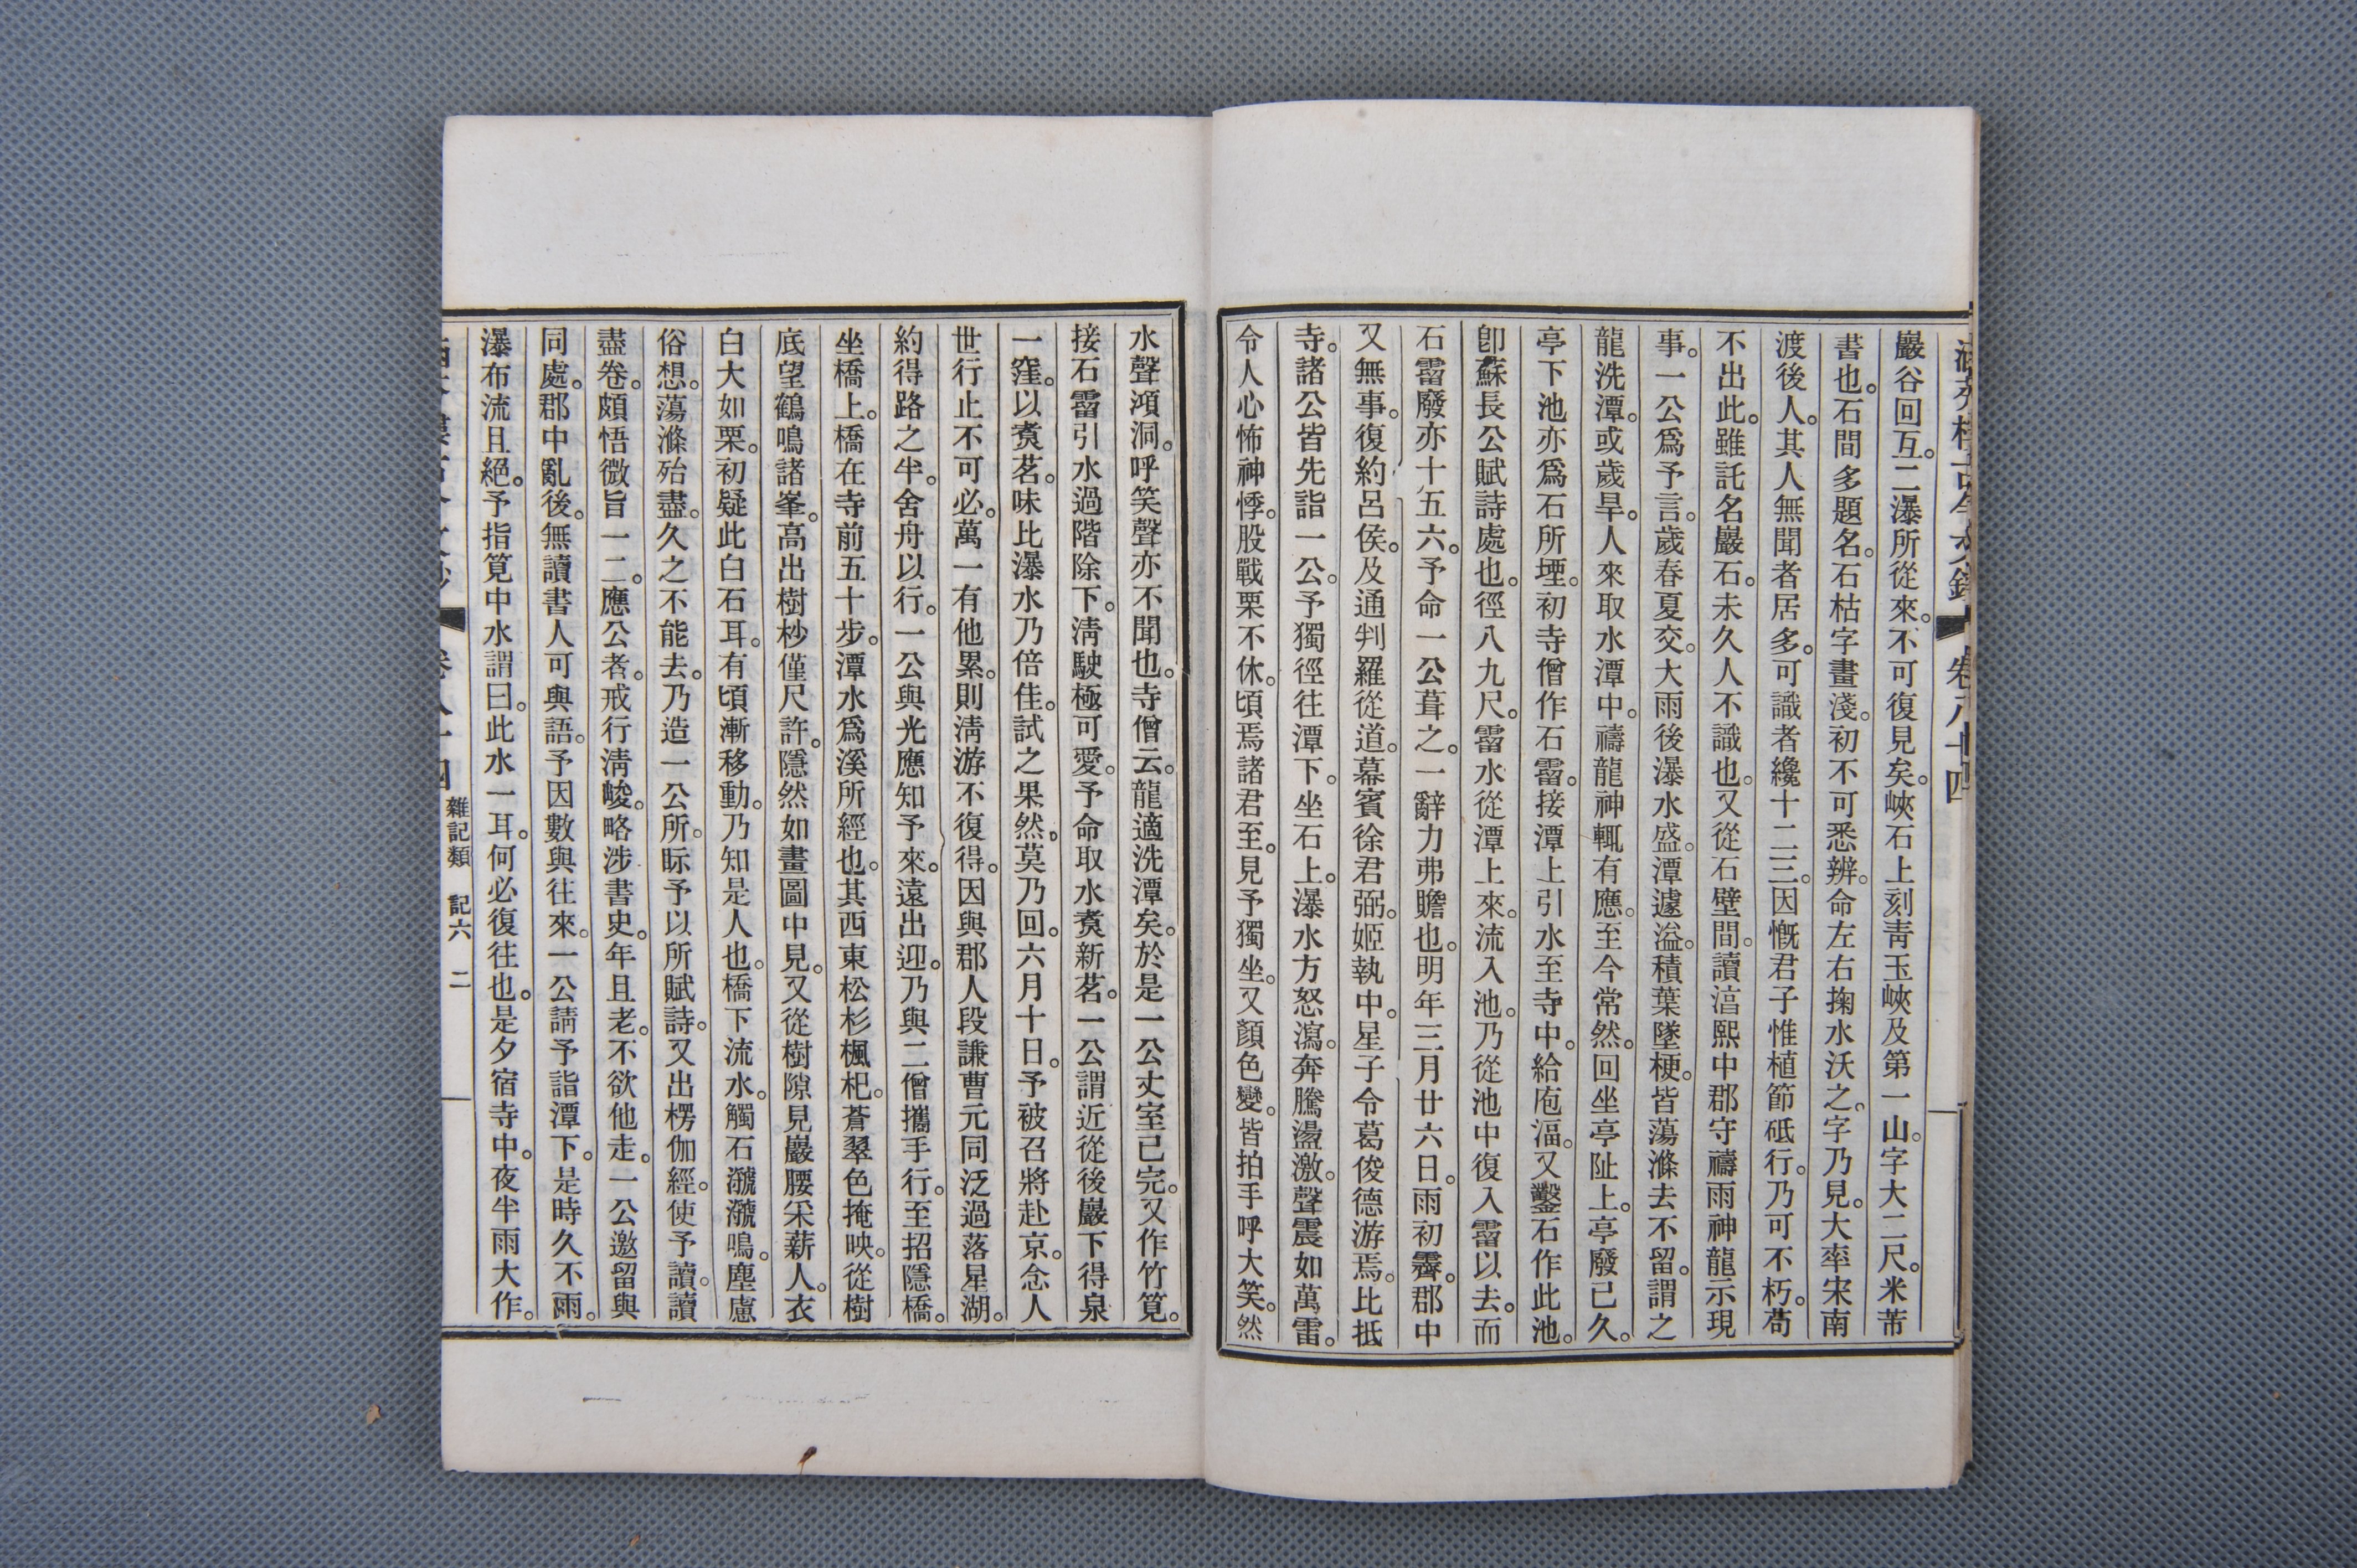 卷八十四
巖谷回互。二瀑所從來。不可復見矣。峽石上刻靑玉峽及第一山。字大二尺。米芾
書也。石間多題名。石枯字畫淺。初不可悉辨。命左右掬水沃之。字乃見。大率宋南
渡後人。其人無聞者居多。可識者纔十二三。因慨君子惟植節砥行。乃可不朽。苟
不出此。雖託名巖石。未久人不識也。又從石壁間。讀淳熙中郡守禱雨神龍示現
事。一公爲予言。歲春夏交。大雨後瀑水盛。潭遽溢。積葉墜梗。皆蕩滌去不留。謂之
龍洗潭。或歲旱。人來取水潭中。禱龍神輒有應。至今常然。回坐亭阯上。亭廢已久。
亭下池亦爲石所堙。初寺僧作石霤。接潭上引水至寺中。給庖湢。又鑿石作此池。
卽蘇長公賦詩處也。徑八九尺。霤水從潭上來。流入池。乃從池中復入霤以去。而
石霤廢亦十五六。予命一公葺之。一辭力弗贍也。明年三月廿六日。雨初霽。郡中
又無事。復約呂侯。及通判羅從道。幕賓徐君弼。姬執中。星子令葛俊德游焉。比抵
寺。諸公皆先詣一公。予獨徑往潭下。坐石上。瀑水方怒瀉。奔騰盪激。聲震如萬雷。
令人心怖神悸。股戰栗不休。頃焉諸君至。見予獨坐。又顏色變。皆拍手呼大笑。然
水聲澒洞。呼笑聲亦不聞也。寺僧云。龍適洗潭矣。於是一公丈室已完。又作竹筧。
接石霤引水過階除下。淸駛極可愛。予命取水煑新茗。一公謂近從後巖下得泉
一窪。以煑茗。味比瀑水乃倍佳。試之果然。莫乃回。六月十日。予被召將赴京。念人
世行止不可必。萬一有他累。則淸游不復得。因與郡人段謙曹元同泛過落星湖。
約得路之半。舍舟以行。一公與光應知予來。遠出迎。乃與二僧攜手行。至招隱橋。
坐橋上。橋在寺前五十步。潭水爲溪所經也。其西東松杉楓杞。蒼翠色掩映。從樹
底望鶴鳴諸峯。高出樹杪僅尺許。隱然如畫圖中見。又從樹隙見巖腰采薪人。衣
白大如栗。初疑此白石耳。有頃漸移動。乃知是人也。橋下流水。觸石㶁㶁鳴。塵慮
俗想。蕩滌殆盡。久之不能去。乃造一公所。眎予以所賦詩。又出楞伽經。使予讀。讀
盡卷。頗悟微旨一二。應公者。戒行淸峻。略涉書史。年且老。不欲他走。一公邀留與
同處。郡中亂後。無讀書人可與語。予因數與往來。一公請予詣潭下。是時久不雨。
瀑布流且絕。予指筧中水謂曰。此水一耳。何必復往也。是夕宿寺中。夜半雨大作。
雜記類 記六 二